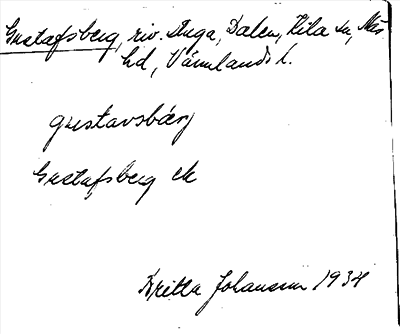 Gustafsberg, riv. stuga, Dalen, Kila sn, Näs
hd, Värmlands l.
gustavsbärj
Gustafsberg ek
Britta Johansson 1934